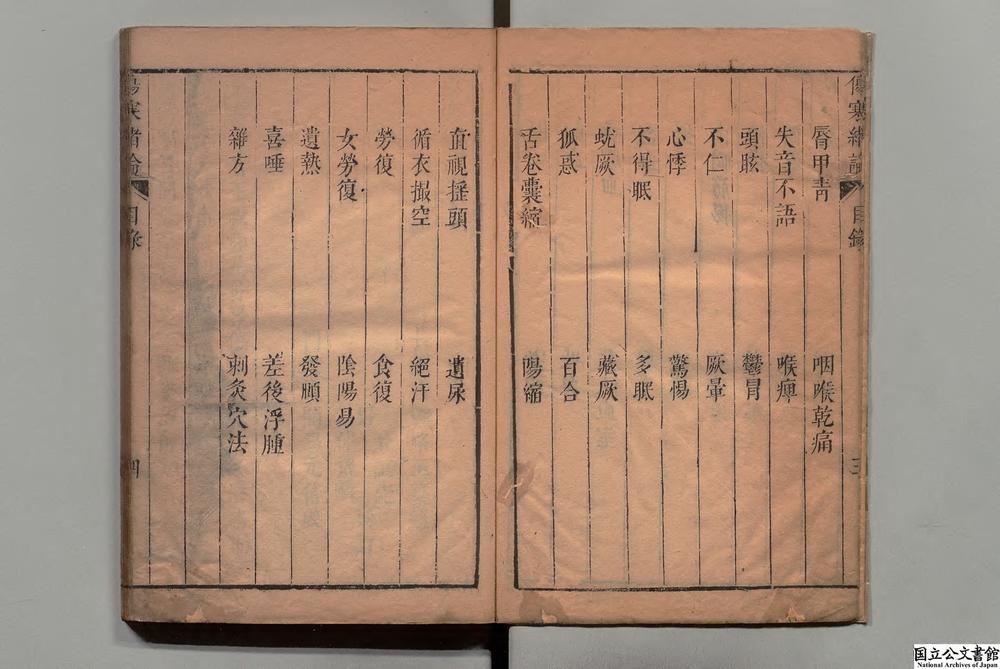 傷寒緒論 目錄 三
脣甲青 咽喉乾痛
失音不語 喉痺
頭眩 鬱冒
不仁 厥暈
心悸 驚惕
不得眠 多眠
蚘厥 藏厥
狐惑 百合
舌卷囊縮 陽縮
直視搖頭 遺尿
循衣撮空 絕汗
勞復 食復
女勞復 陰陽易
遺熱 發頤
喜唾 差後浮腫
雜方 刺灸穴法
傷寒緒論 目錄 四
国立公文書館
National Archives of Japan